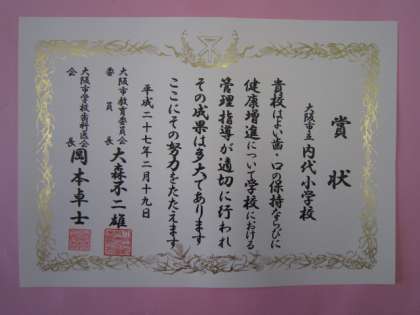 賞状
大阪市立内代小学校
貴校はよい歯・口の保持ならびに
健康増進について学校における
管理指導が適切に行われ
その成果は多大であります
ここにその努力をたたえます
平成二十七年二月十九日
大阪市教育委員会
委員長 大森不二雄
大阪市学校歯科医会
会長 岡本卓士